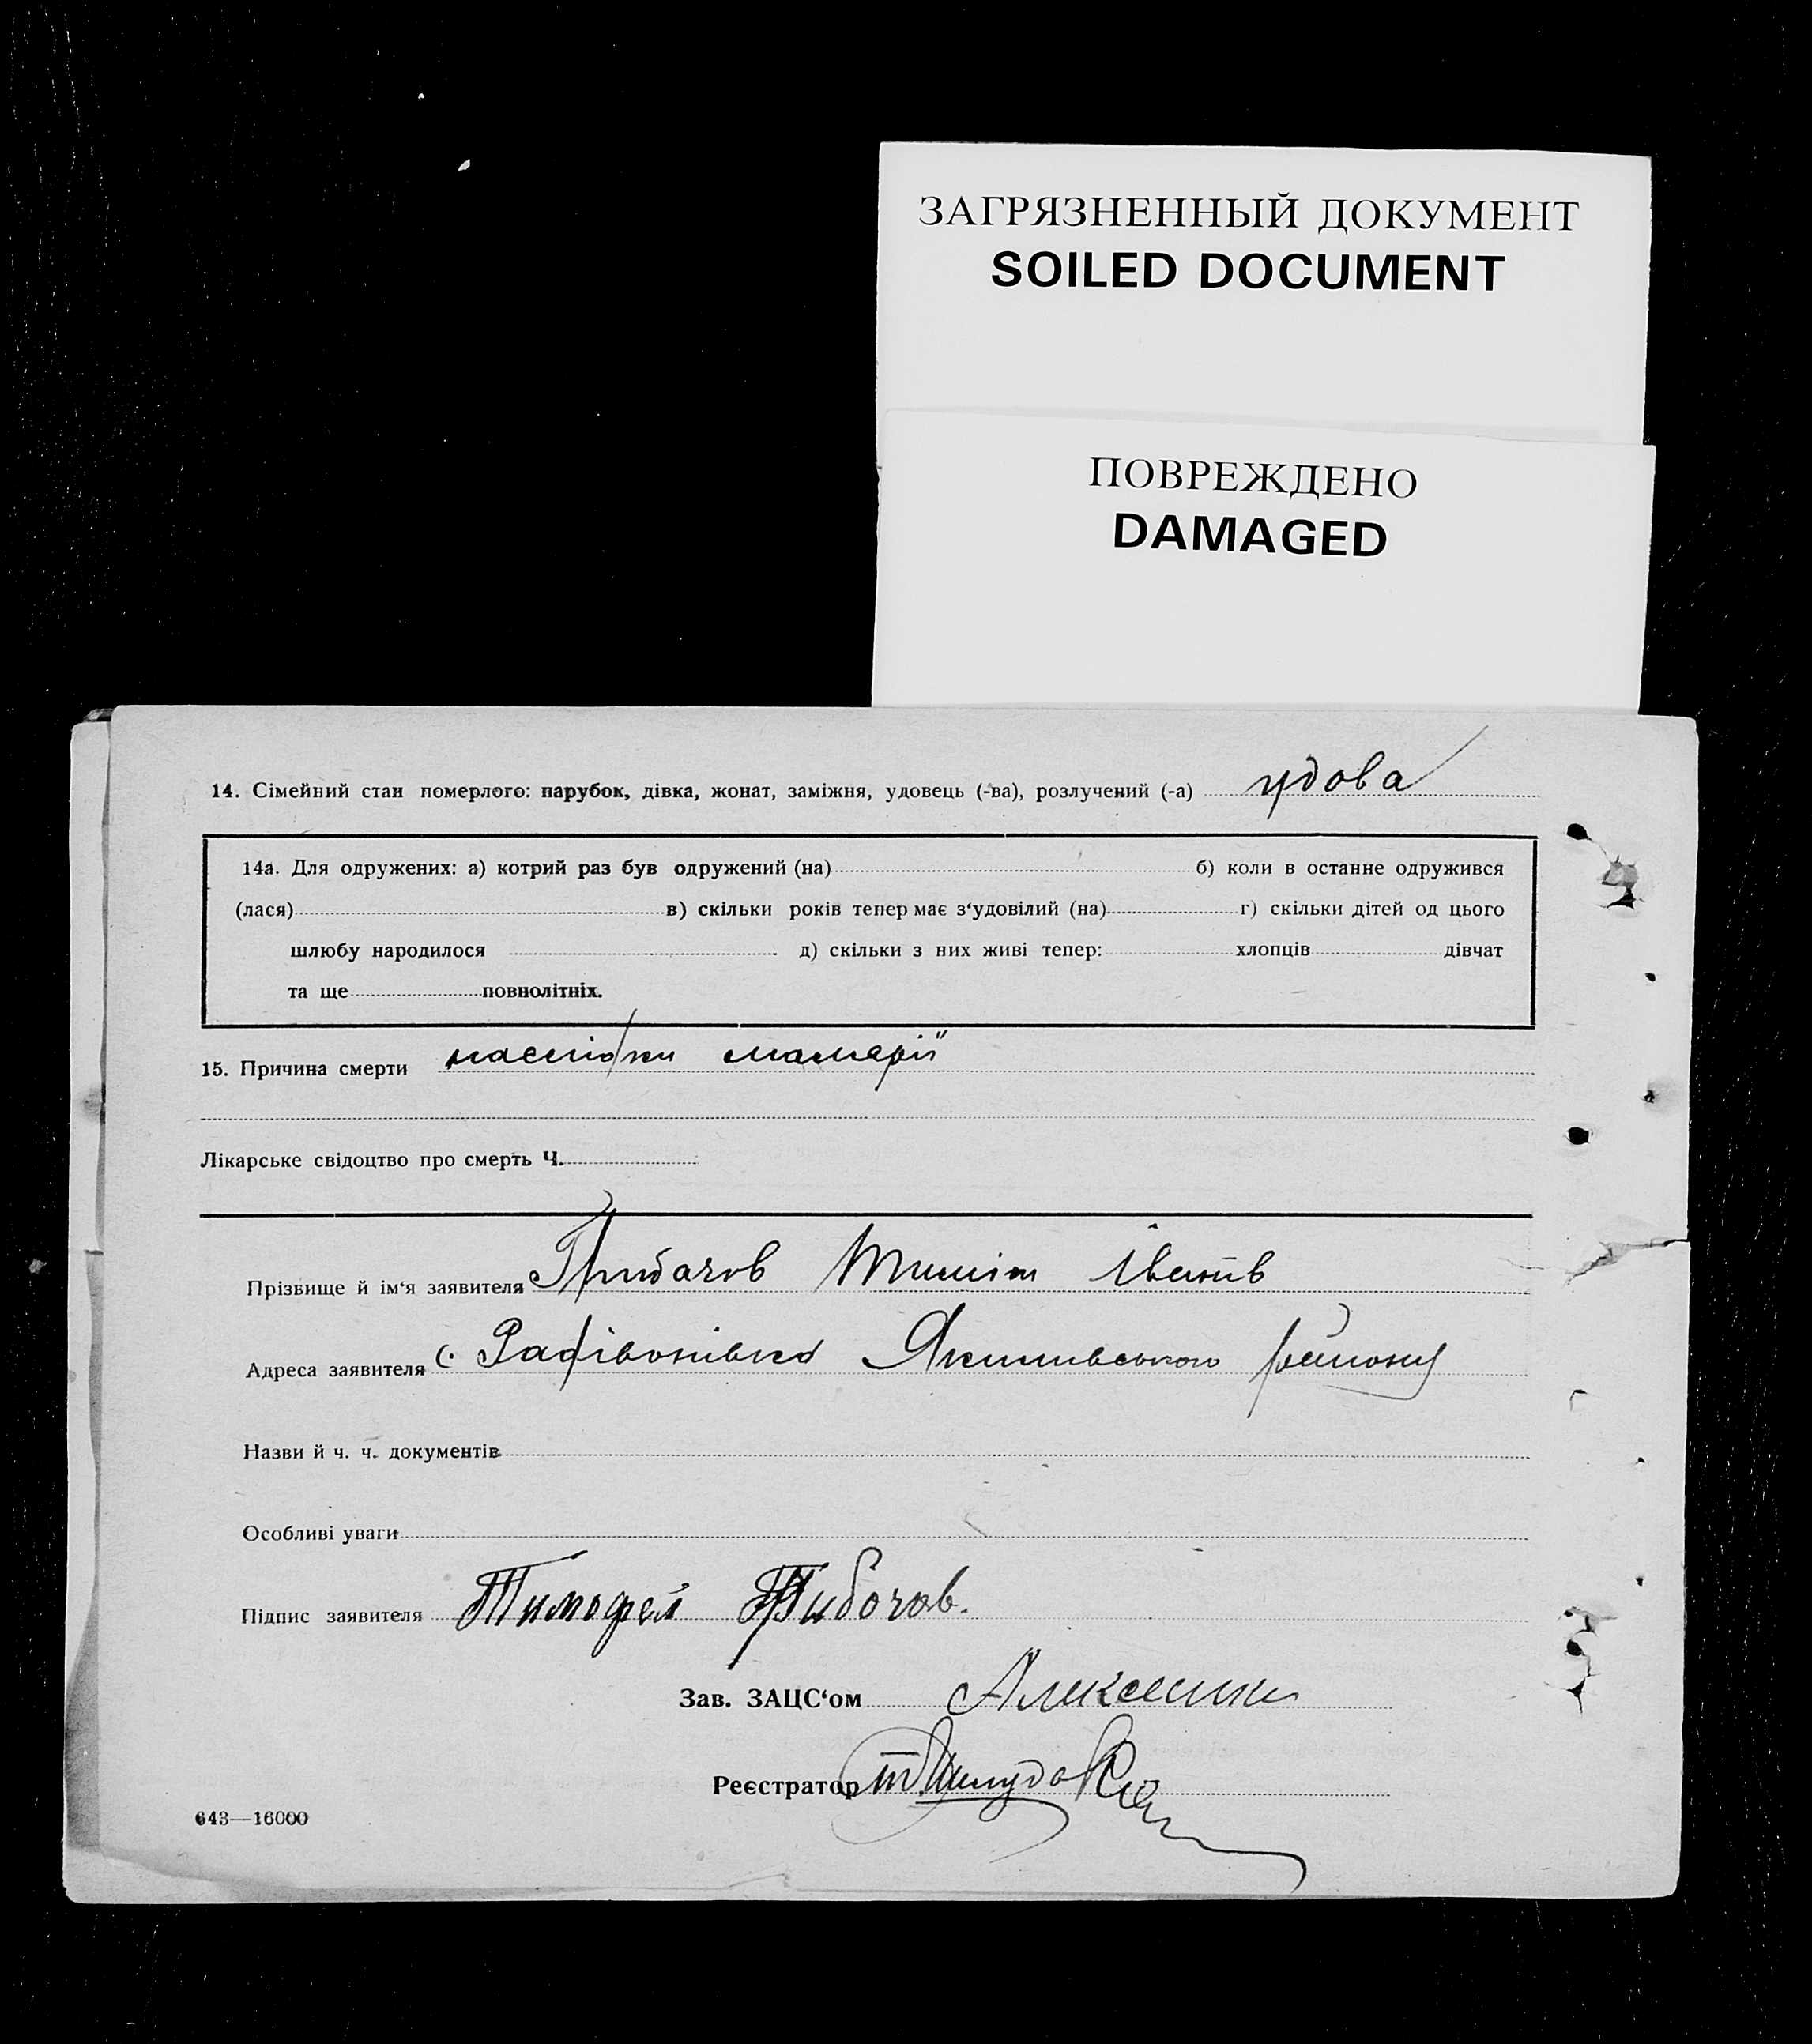 ЗАГРЯЗНЕННЫЙ ДОКУМЕНТ
SOILED DOCUMENT
ПОВРЕЖДЕНО
DAMAGED
14. Сімейний стан померлого: парубок, дівка, жонат, заміжня, удовець (-ва), розлучений (-а) удова
14а. Для одружених: а) котрий раз був одружений (на) б) коли в останне одружився
(лася) в) скільки років тепер має з‘удовілий (на) г) скільки дітей од цього
шлюбу народилося д) скільки з них живі тепер: хлопців дівчат
та ще повнолітніх.
15. Причина смерти наслідки малярії
Лікарське свідоцтво про смерть Ч.
Прізвище й ім‘я заявителя Грибачов Тиміш Іванів
Адреса заявителя с. Радівонівка Якимівського району
Назви й ч. ч. документів
Особливі уваги
Підпис заявителя Тимофей
Зав. ЗАЦС‘ом
Реєстратор
643—16000